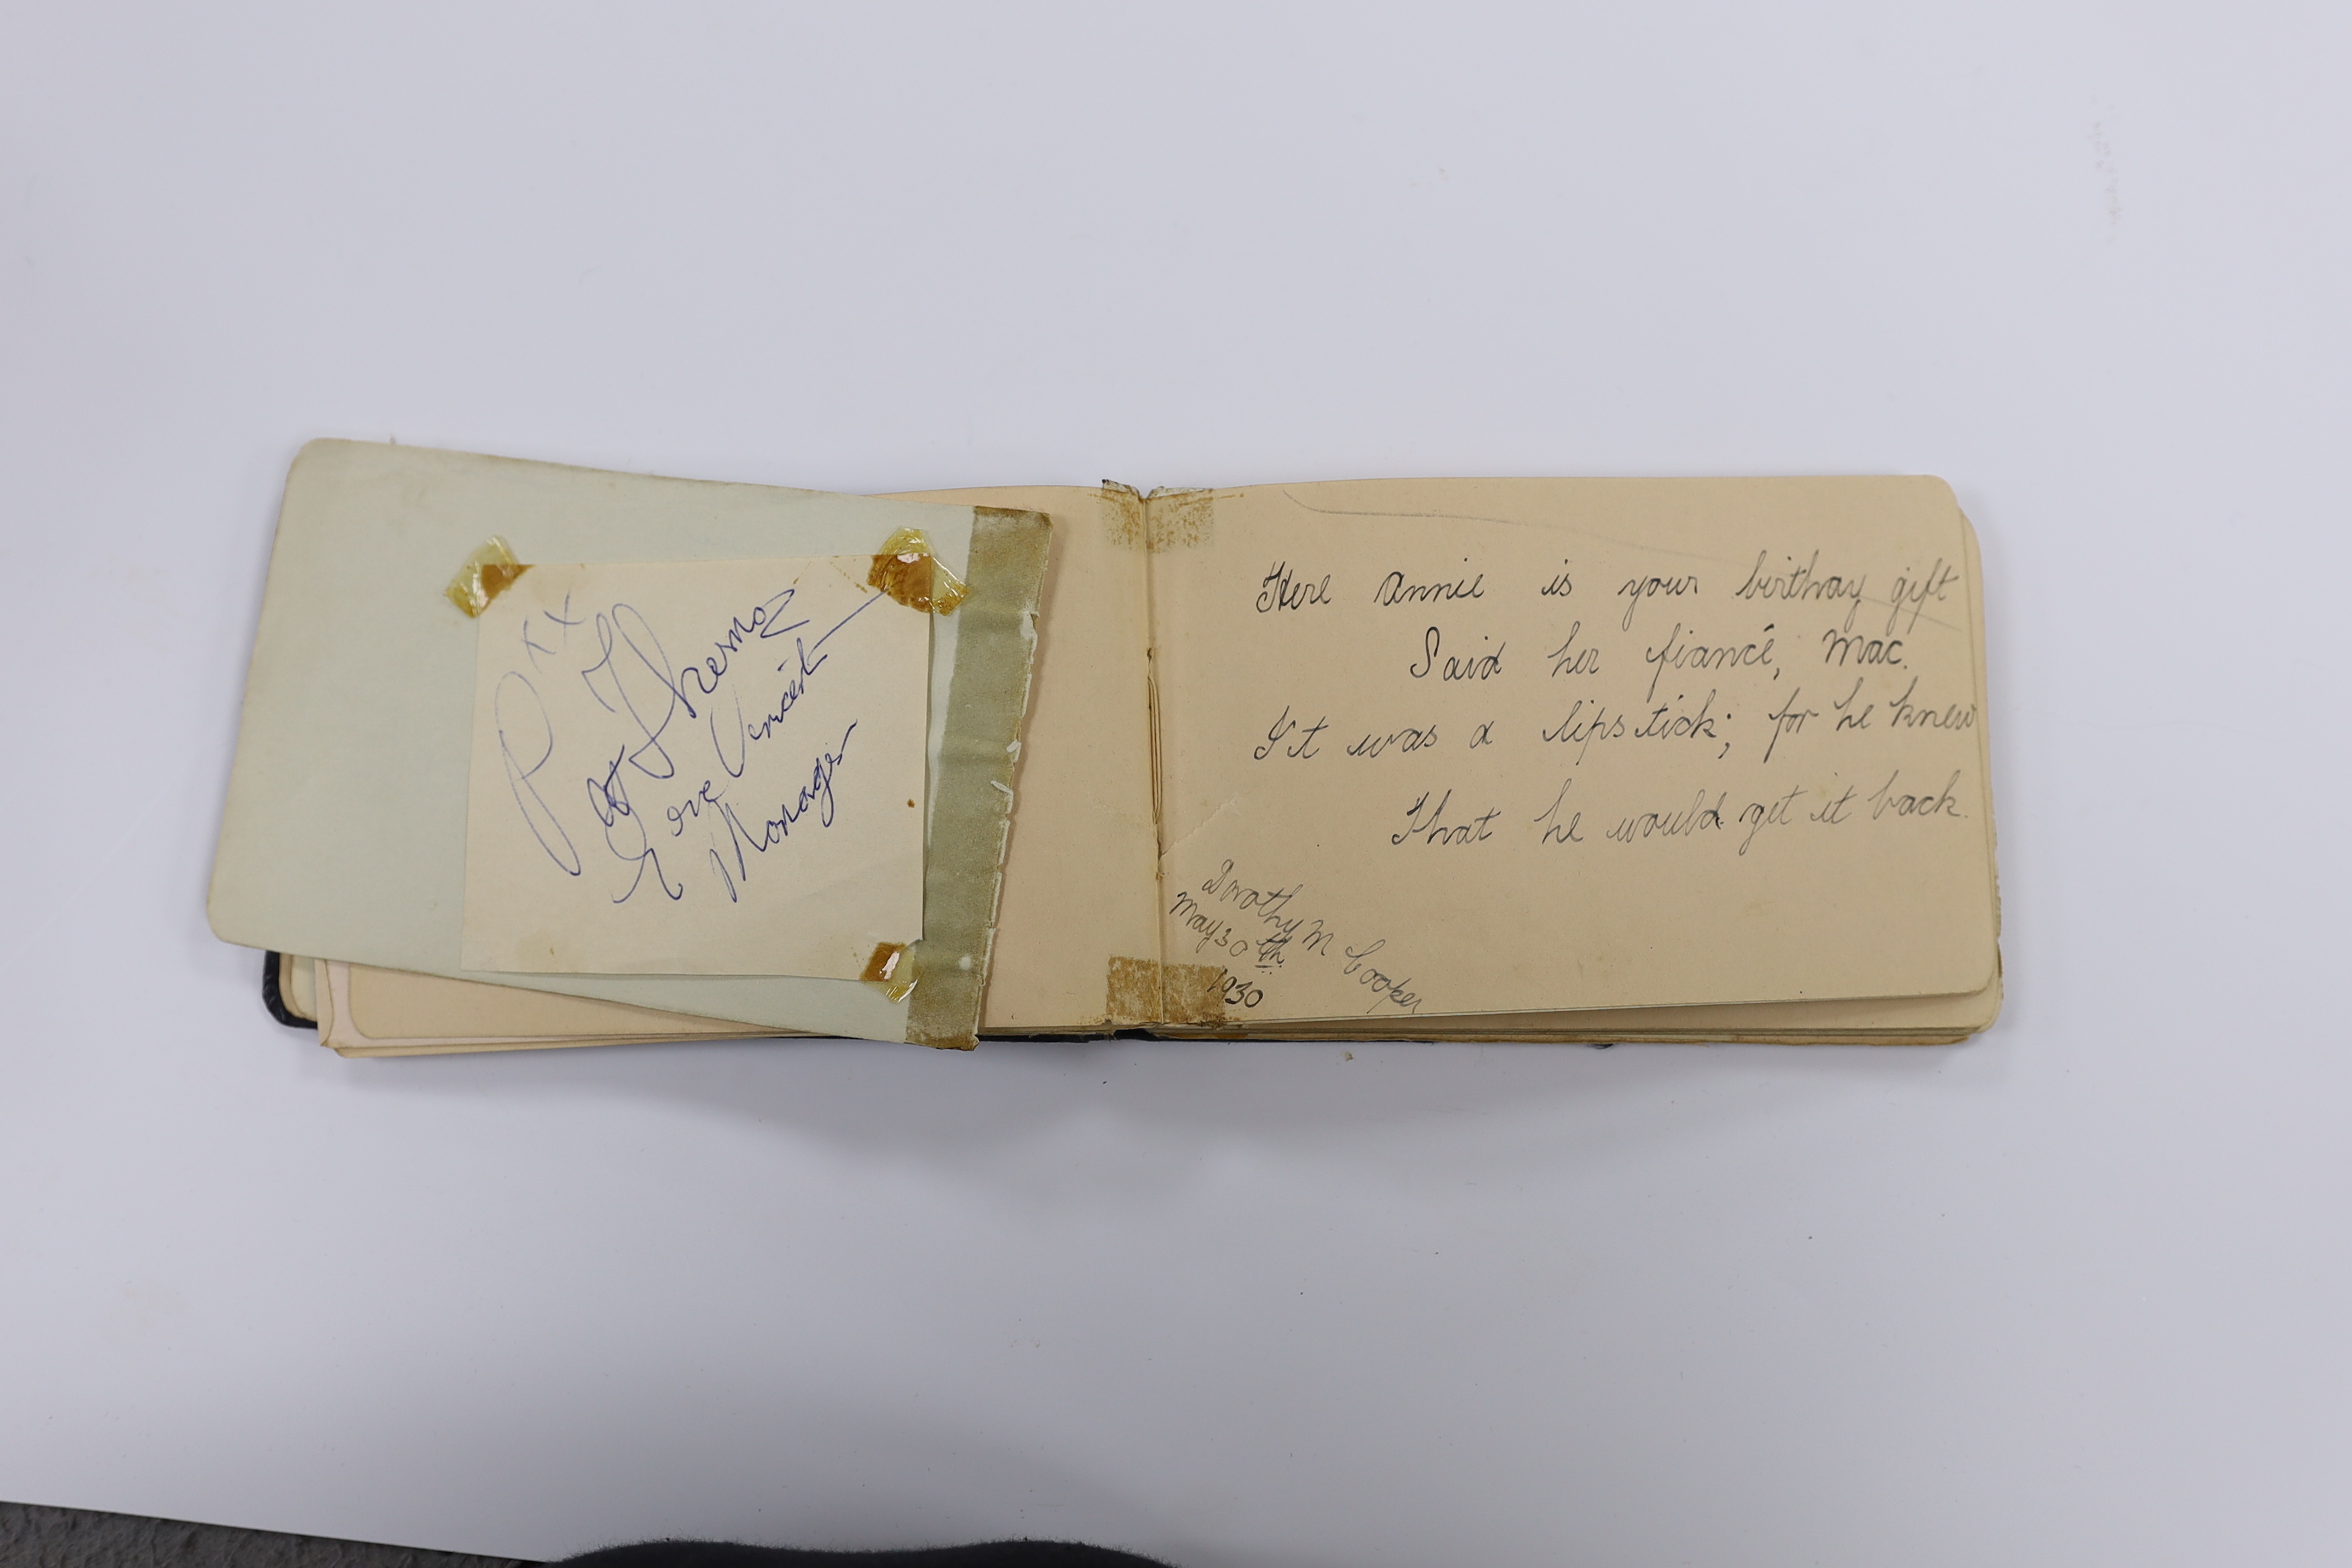 xx
Pat Thomas
Gene Vincent
Manager
Here Annie is your birthay gift
Said her fiancé, Mac.
It was a lipstick; for he knew
That he would get it back.
Dorothy M Cooper
May 30th
1930